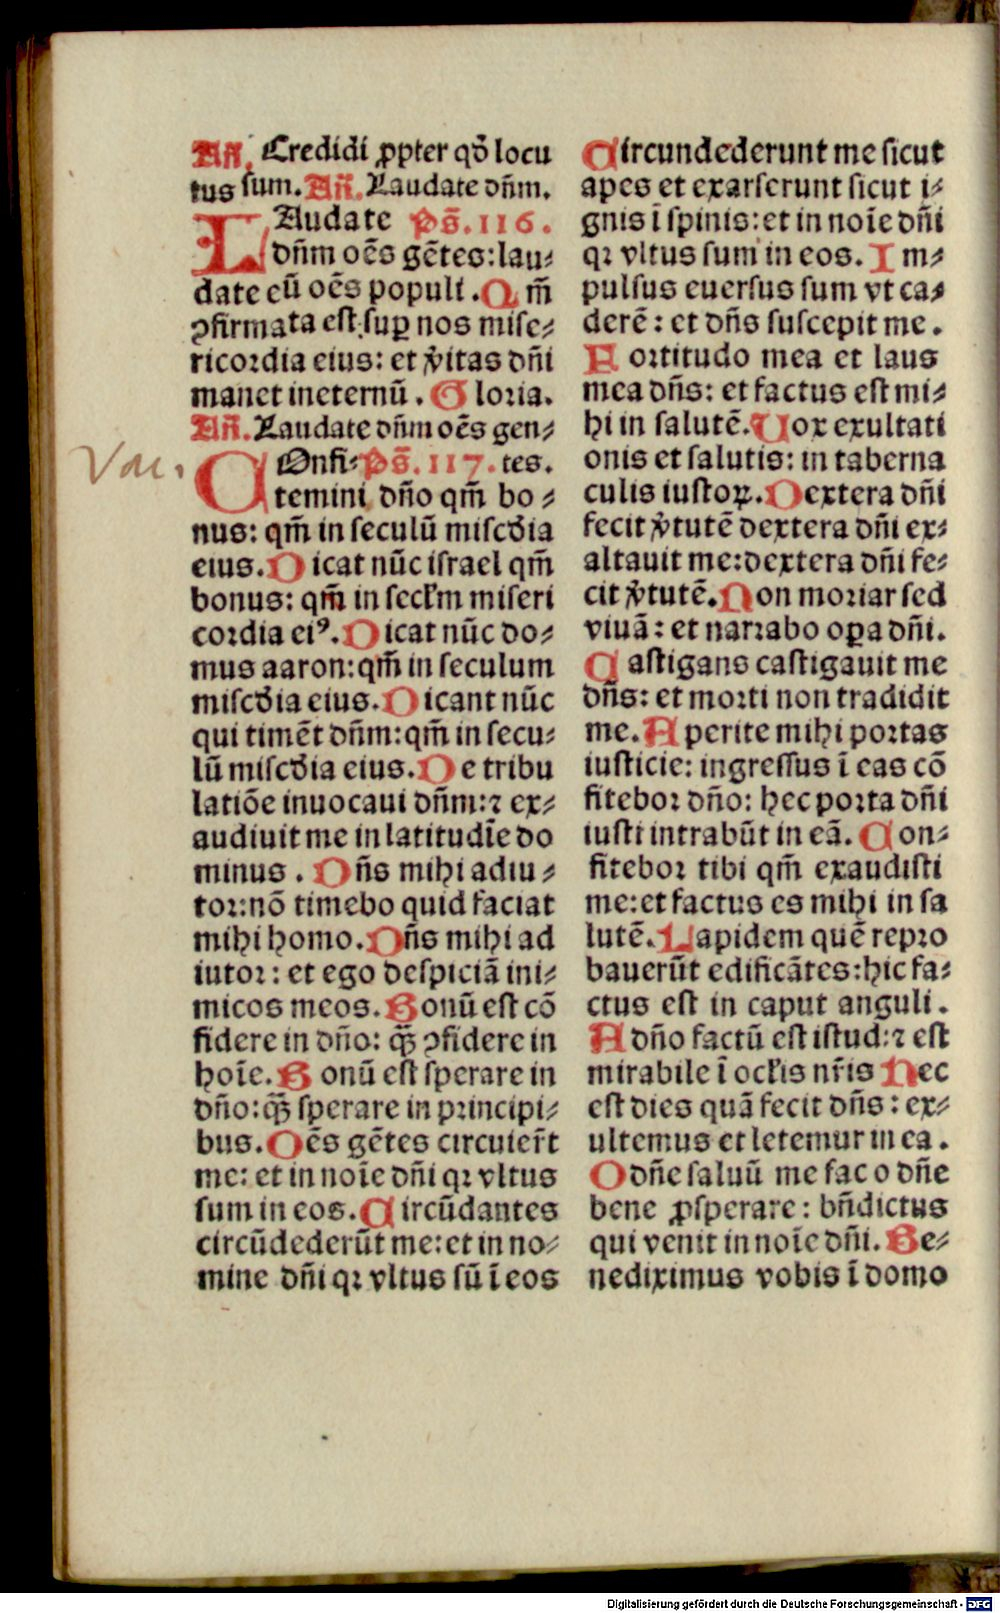 Añ. Credidi ꝓpter qđ locu
tus sum. Añ. Laudate dñm.
LAudate Ps̄.116.
dñm oēs gētes: lau⸗
date eū oēs populi. Qm̄
ꝯfirmata est suꝑ nos mise⸗
ricordia eius: et v̓itas dñi
manet ineternū. Gloria.
Añ. Laudate dñm oēs gen⸗
Vac.
COnfi⸗ Ps̄.117. tes.
temini dño qm̄ bo⸗
nus: qm̄ in seculū misc̄dia
eius. Dicat nūc israel qm̄
bonus: qm̄ in secl̄m miseri
cordia eiꝰ. Dicat nūc do⸗
mus aaron: qm̄ in seculum
misc̄dia eius. Dicant nūc
qui timēt dñm: qm̄ in secu⸗
lū misc̄dia eius. De tribu
latiōe inuocaui dñm: ⁊ ex⸗
audiuit me in latitudīe do
minus. Dñs mihi adiu⸗
tor: nō timebo quid faciat
mihi homo. Dñs mihi ad
iutor: et ego despiciā ini⸗
micos meos. Bonū est cō
fidere in dño: q̄ꝫ ꝯfidere in
hoīe. Bonū est sperare in
dño: q̄ꝫ sperare in principi⸗
bus. Oēs gētes circuier̄t
me: et in noīe dñi qꝛ vltus
sum in eos. Circūdantes
circūdederūt me: et in no⸗
mine dñi qꝛ vltus sū ī eos
Circundederunt me sicut
apes et exarserunt sicut i⸗
gnis ī spinis: et in noīe dñi
qꝛ vltus sum in eos. Im⸗
pulsus euersus sum vt ca⸗
derē: et dñs suscepit me.
Fortitudo mea et laus
mea dñs: et factus est mi⸗
hi in salutē. Uox exultati
onis et salutis: in taberna
culis iustoꝝ. Dextera dñi
fecit v̓tutē dextera dñi ex⸗
altauit me: dextera dñi fe⸗
cit v̓tutē. Non moriar sed
viuā: et narrabo oꝑa dñi.
Castigans castigauit me
dñs: et morti non tradidit
me. Aperite mihi portas
iusticie: ingressus ī eas cō
fitebor dño: hec porta dñi
iusti intrabūt in eā. Con⸗
fitebor tibi qm̄ exaudisti
me: et factus es mihi in sa
lutē. Lapidem quē repro
bauerūt edificātes: hic fa⸗
ctus est in caput anguli.
A dño factū est istud: ⁊ est
mirabile ī ocl̄is nr̄is Nec
est dies quā fecit dñs: ex⸗
ultemus et letemur in ea.
O dñe saluū me fac o dñe
bene ꝓsperare: bñdictus
qui venit in noīe dñi. Be⸗
nediximus vobis ī domo
Digitalisierung gefördert durch die Deutsche Forschungsgemeinschaft - DFG